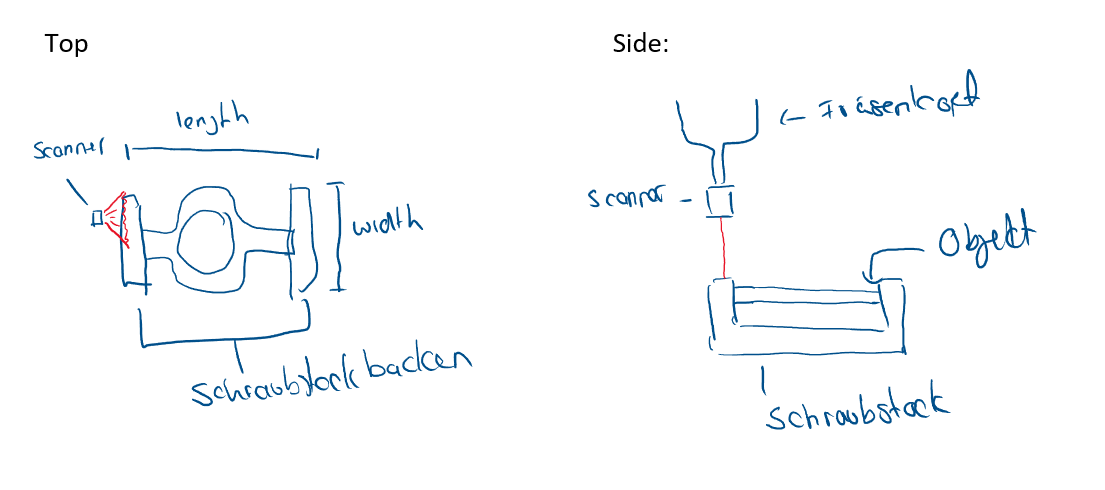 Top
Side:
length
Scanner
width
Schraubstock backen
Fräsenkopf
Scanner
Object
Schraubstock